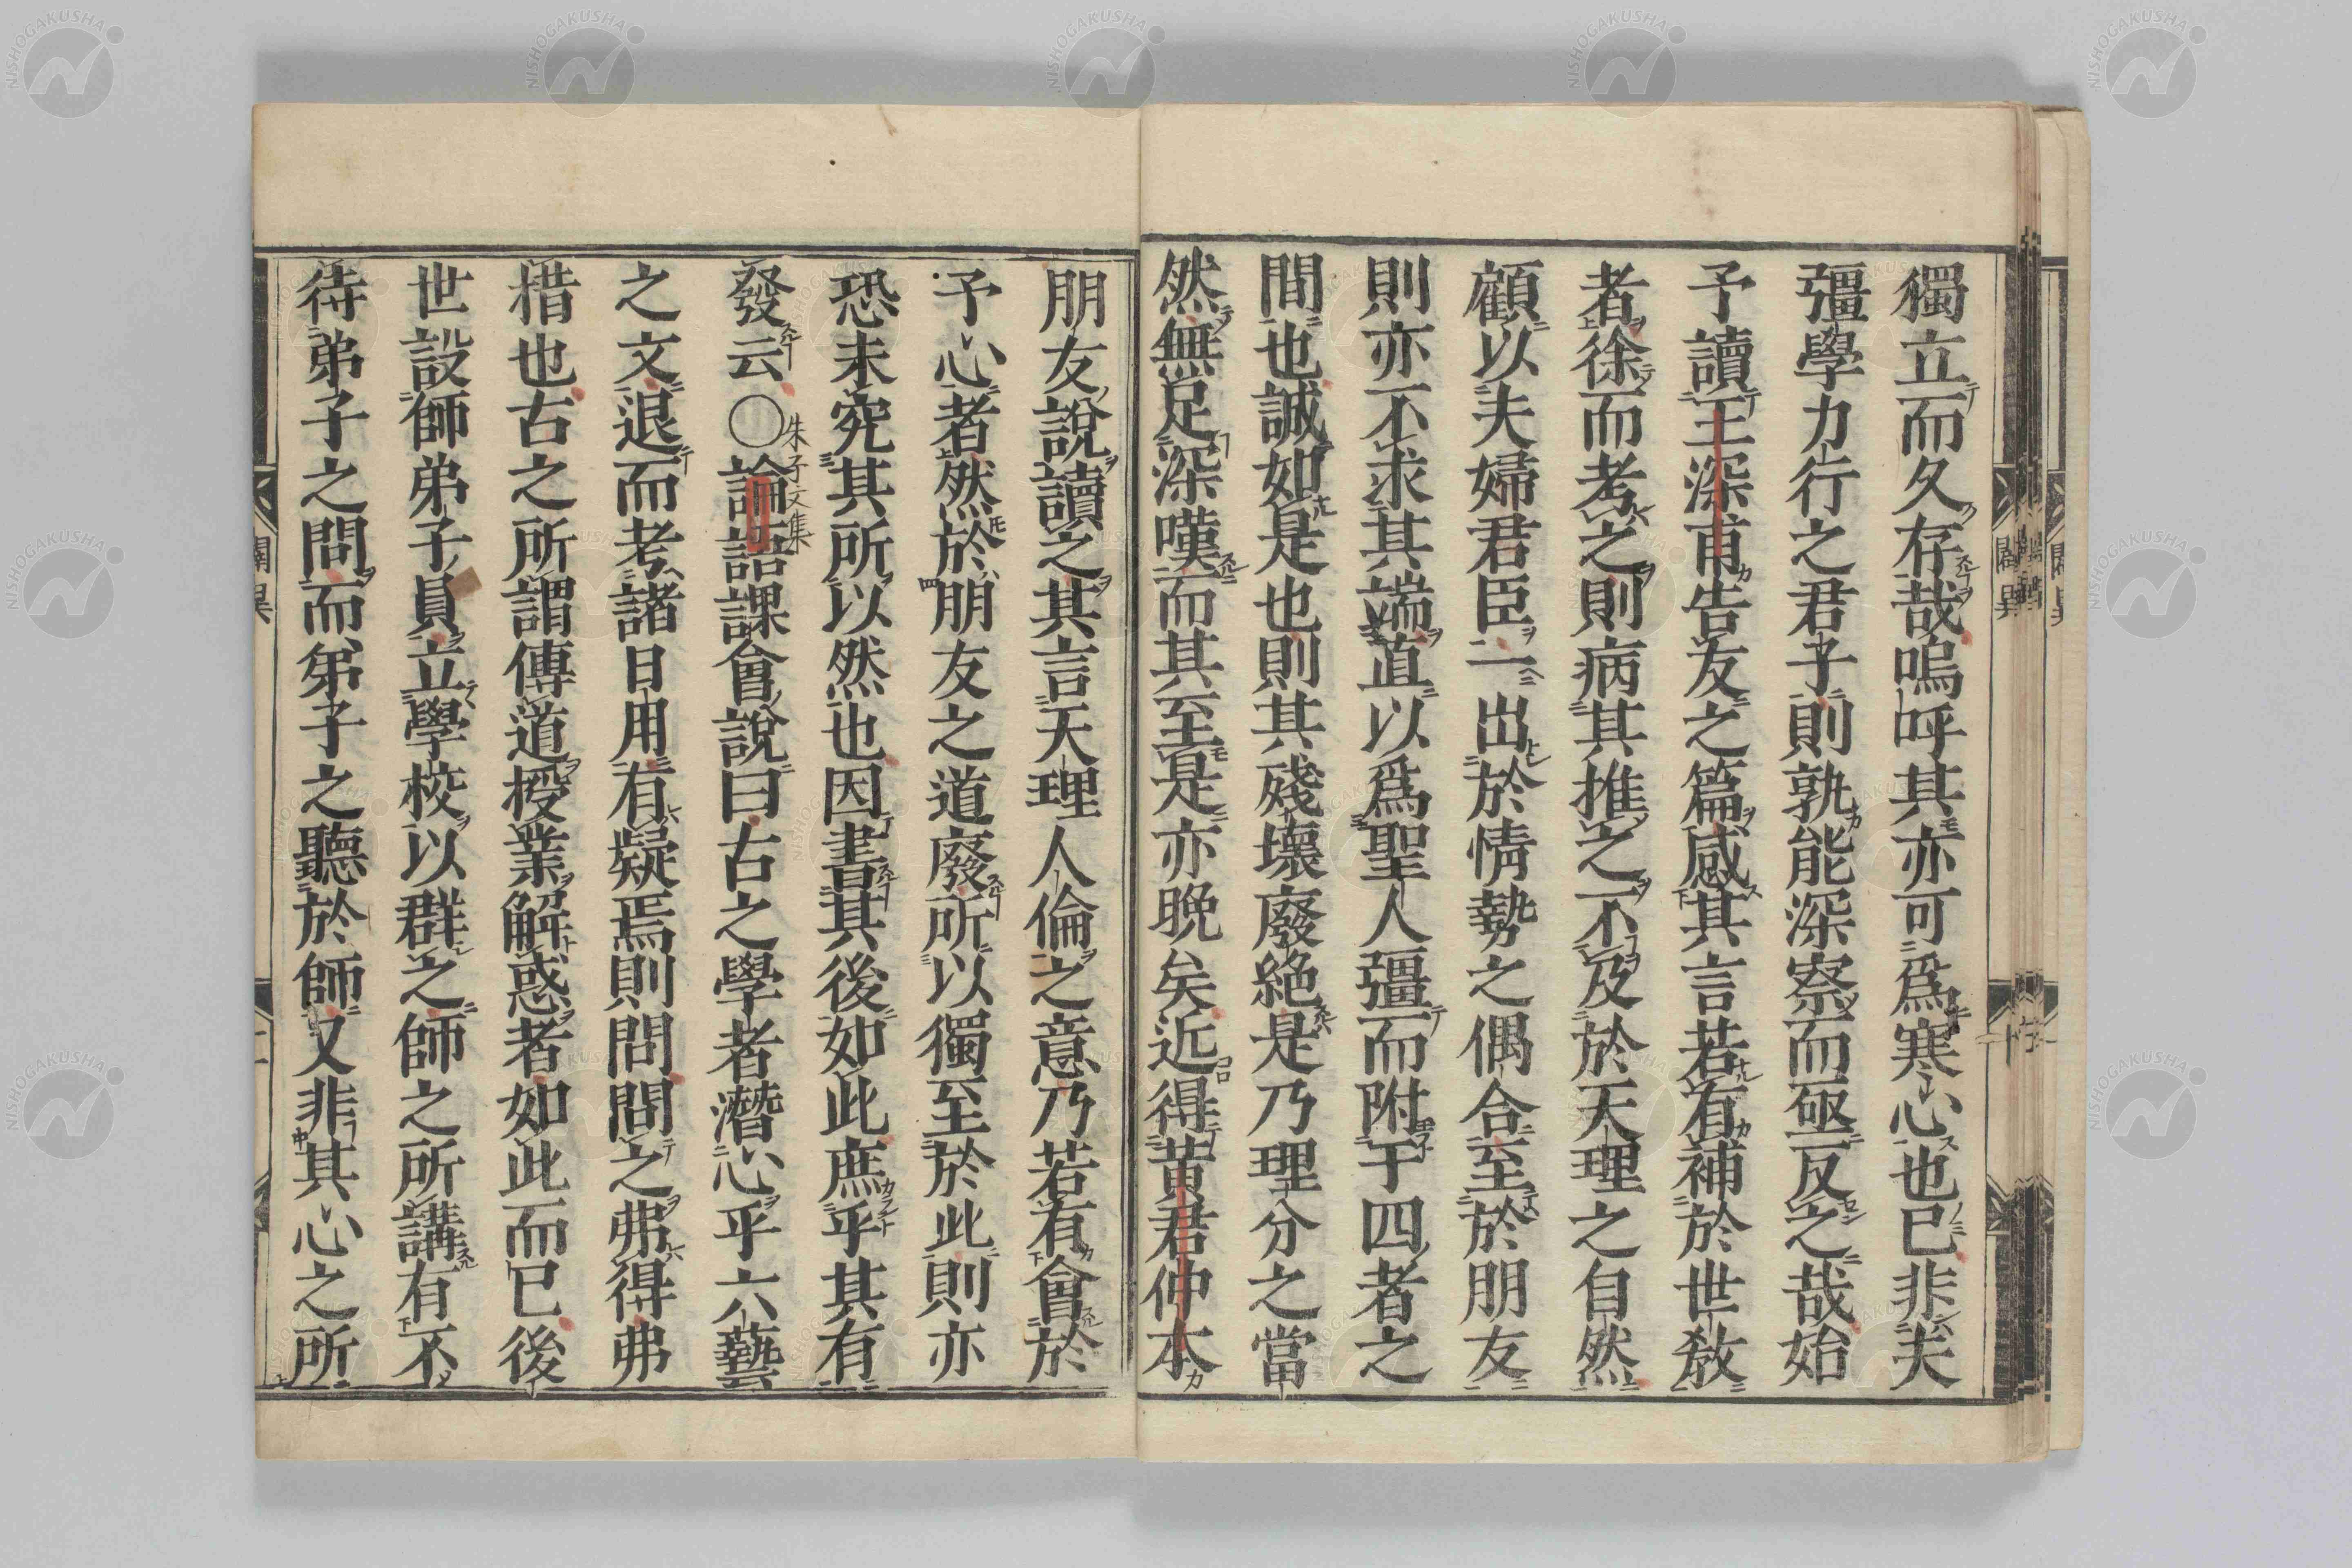 獨立而久存哉嗚呼其亦可爲寒心也已非夫
彊學力行之君子則孰能深察而亟反之哉始
予讀王深甫告友之篇感其言若有補於世敎
者徐而考之則病其推之不及於天理之自然
顧以夫婦君臣一出於情勢之偶合至於朋友
則亦不求其端直以爲聖人彊而附于四者之
間也誠如是也則其殘壞廢絶是乃理分之當
然無足深嘆而其至是亦晩矣近得黄君仲本
朋友說讀之其言天理人倫之意乃若有會於
予心者然於朋友之道廢所以獨至於此則亦
恐未究其所以然也因書其後如此庶乎其有
發云○論語課會說曰古之學者潛心乎六藝
朱子文集
之文退而考諸日用有疑焉則問問之弗得弗
措也古之所謂傳道授業解惑者如此而已後
世設師弟子員立學校以群之師之所講有不
待弟子之問而弟子之聽於師又非其心之所
闢異
NISHOGAKUSHA